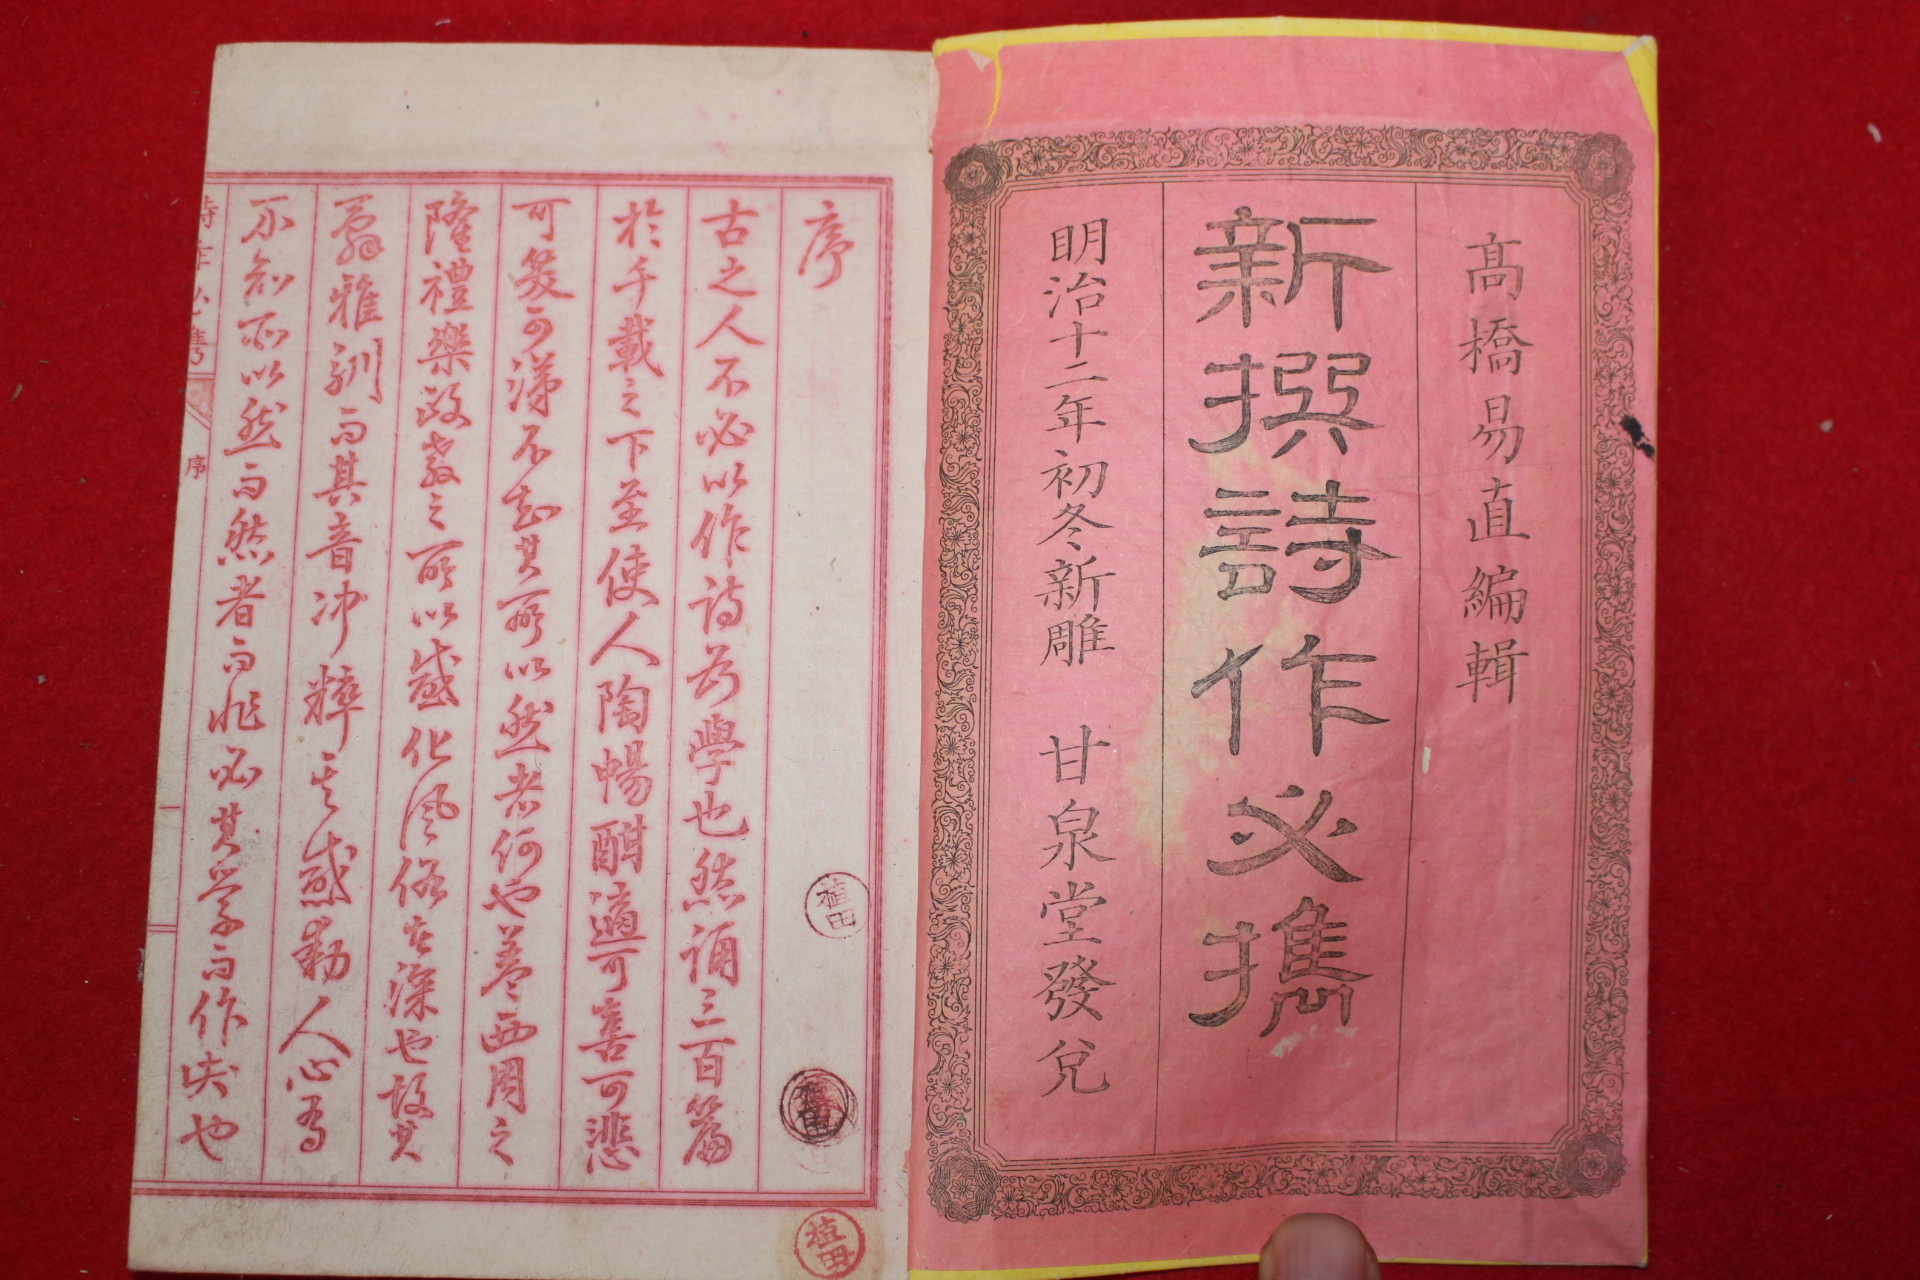 高橋易直編輯
新撰詩作必携
明治十二年初冬新雕　甘泉堂發兌
序
古之人不必以作詩為學也然誦三百篇
於千載之下至使人陶暢酣適可喜可悲
可笑可涕不知其所以然者何也蓋西周之
隆禮樂政教之所以感化風俗者深也故其
雅馴而其音冲粹其感動人心有
不知所以然而然者而非必其學而作去也
詩作必雋
序
植田
植田
植田